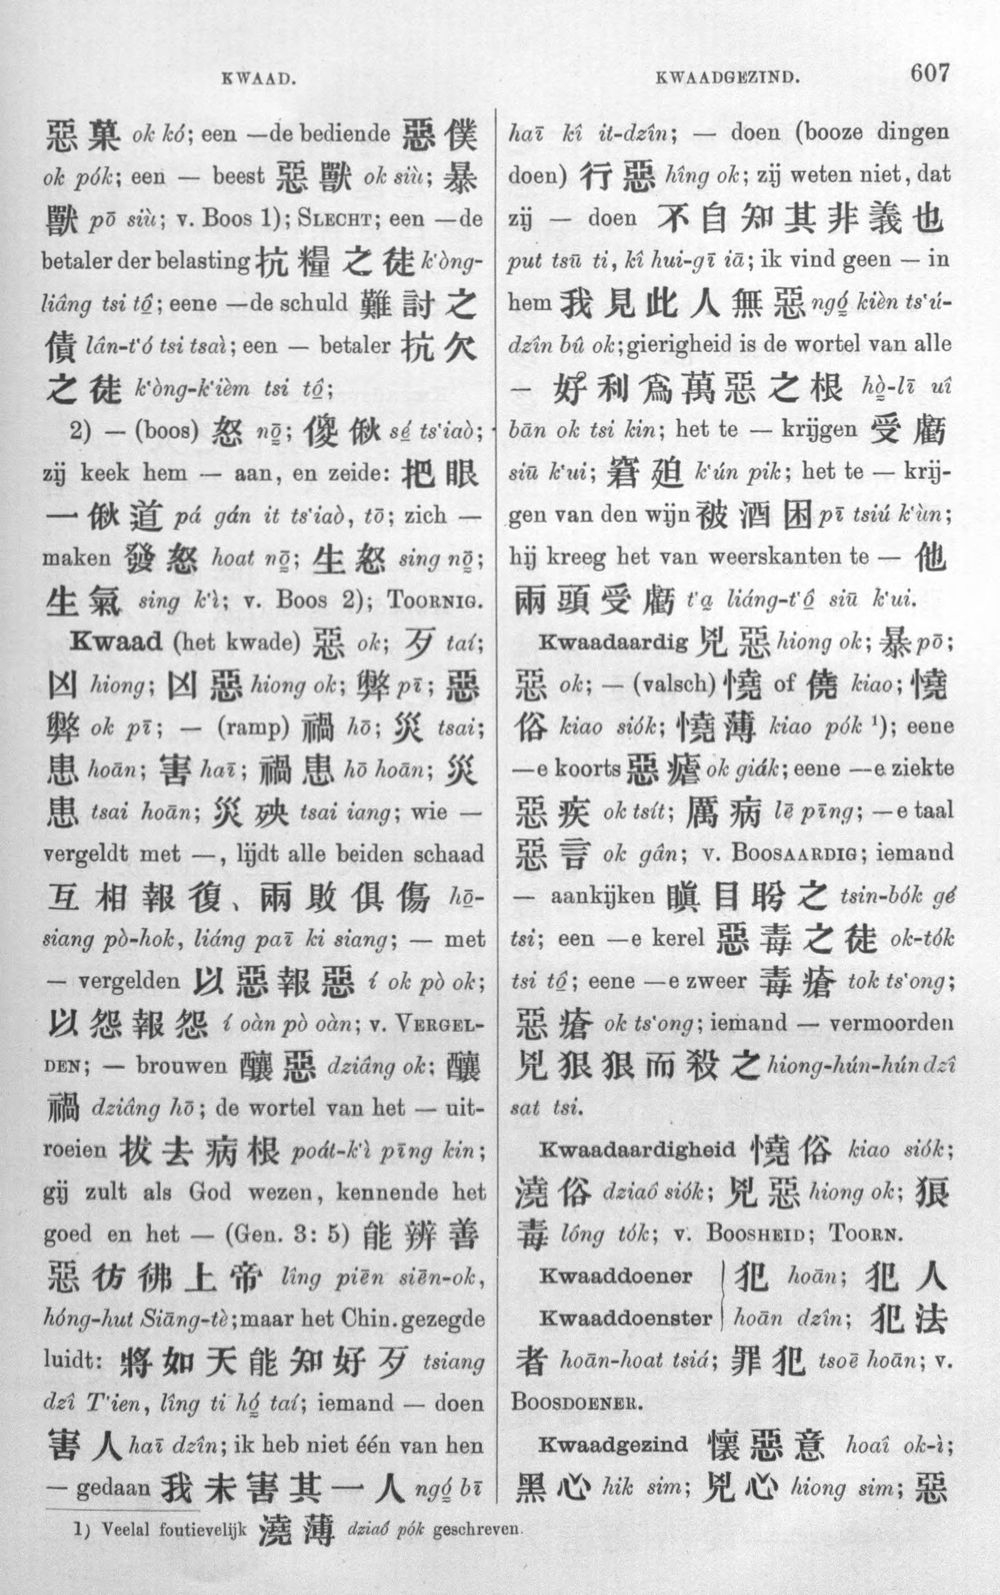 KWAAD.
KWAADGEZIND.
607
惡菓 ok kó; een —de bediende 惡僕
ok pók; een — beest 惡獸 ok siù; 暴
獸 pō siù; v. Boos 1); SLECHT; een —de
betaler der belasting 抗糧之徒 k'òng-
liâng tsi tô̤; eene —de schuld 難討之
債 lân-t'ó tsi tsaì; een — betaler 抗欠
之徒 k'òng-k'ièm tsi tô̤;
2) — (boos) 怒 nō̤; 傻偢 sé̤ ts'iaò;
zij keek hem — aan, en zeide: 把眼
一偢道 pá gán it ts'iaò, tō; zich —
maken 發怒 hoat nō̤; 生怒 sing nō̤;
生氣 sing k'ì; v. Boos 2); TOORNIG.
Kwaad (het kwade) 惡 ok; 歹 taí;
凶 hiong; 凶惡 hiong ok; 弊 pī; 惡
弊 ok pī; — (ramp) 禍 hō; 災 tsai;
患 hoān; 害 haī; 禍患 hō hoān; 災
患 tsai hoān; 災殃 tsai iang; wie —
vergeldt met —, lijdt alle beiden schaad
互相報復、兩敗俱傷 hō̤-
siang pò-hok, liáng paī ki siang; — met
— vergelden 以惡報惡 í ok pò ok;
以怨報怨 í oàn pò oàn; v. VERGEL-
DEN; — brouwen 釀惡 dziâng ok; 釀
禍 dziâng hō; de wortel van het — uit-
roeien 拔去病根 poát-k'ì pīng kin;
gij zult als God wezen, kennende het
goed en het — (Gen. 3: 5) 能辨善
惡彷彿上帝 lîng piēn siēn-ok,
hóng-hut Siāng-tè; maar het Chin. gezegde
luidt: 將如天能知好歹 tsiang
dzî T'ien, lîng ti hó̤ taí; iemand — doen
害人 haī dzîn; ik heb niet één van hen
— gedaan 我未害其一人 ngó̤ bī
haī kî it-dzîn; — doen (booze dingen
doen) 行惡 hîng ok; zij weten niet, dat
zij — doen 不自知其非義也
put tsū ti, kî hui-gī iā; ik vind geen — in
hem 我見此人無惡 ngó̤ kièn ts'ú-
dzîn bû ok; gierigheid is de wortel van alle
— 好利爲萬惡之根 hò̤-lī uî
bān ok tsi kin; het te — krijgen 受虧
siū k'ui; 窘廹 k'ún pik; het te — krij-
gen van den wijn 被酒困 pī tsiú k'ùn;
hij kreeg het van weerskanten te — 他
兩頭受虧 t'a̤ liáng-t'ô̤ siū k'ui.
Kwaadaardig 兇惡 hiong ok; 暴 pō;
惡 ok; — (valsch) 憢 of 僥 kiao; 憢
俗 kiao siók; 憢薄 kiao pók ¹); eene
—e koorts 惡瘧 ok giák; eene —e ziekte
惡疾 ok tsít; 厲病 lē pīng; —e taal
惡言 ok gân; v. BOOSAARDIG; iemand
— aankijken 瞋目盻之 tsin-bók gé
tsi; een —e kerel 惡毒之徒 ok-tók
tsi tô̤; eene —e zweer 毒瘡 tok ts'ong;
惡瘡 ok ts'ong; iemand — vermoorden
兇狠狠而殺之 hiong-hún-hún dzî
sat tsi.
Kwaadaardigheid 憢俗 kiao siók;
澆俗 dziaó siók; 兇惡 hiong ok; 狼
毒 lóng tók; v. BOOSHEID; TOORN.
Kwaaddoener | 犯 hoān; 犯人
Kwaaddoenster | hoān dzîn; 犯法
者 hoān-hoat tsiá; 罪犯 tsoē hoān; v.
BOOSDOENER.
Kwaadgezind 懷惡意 hoaî ok-ì;
黑心 hik sim; 兇心 hiong sim; 惡
1) Veelal foutievelijk 澆薄 dziaó pók geschreven.